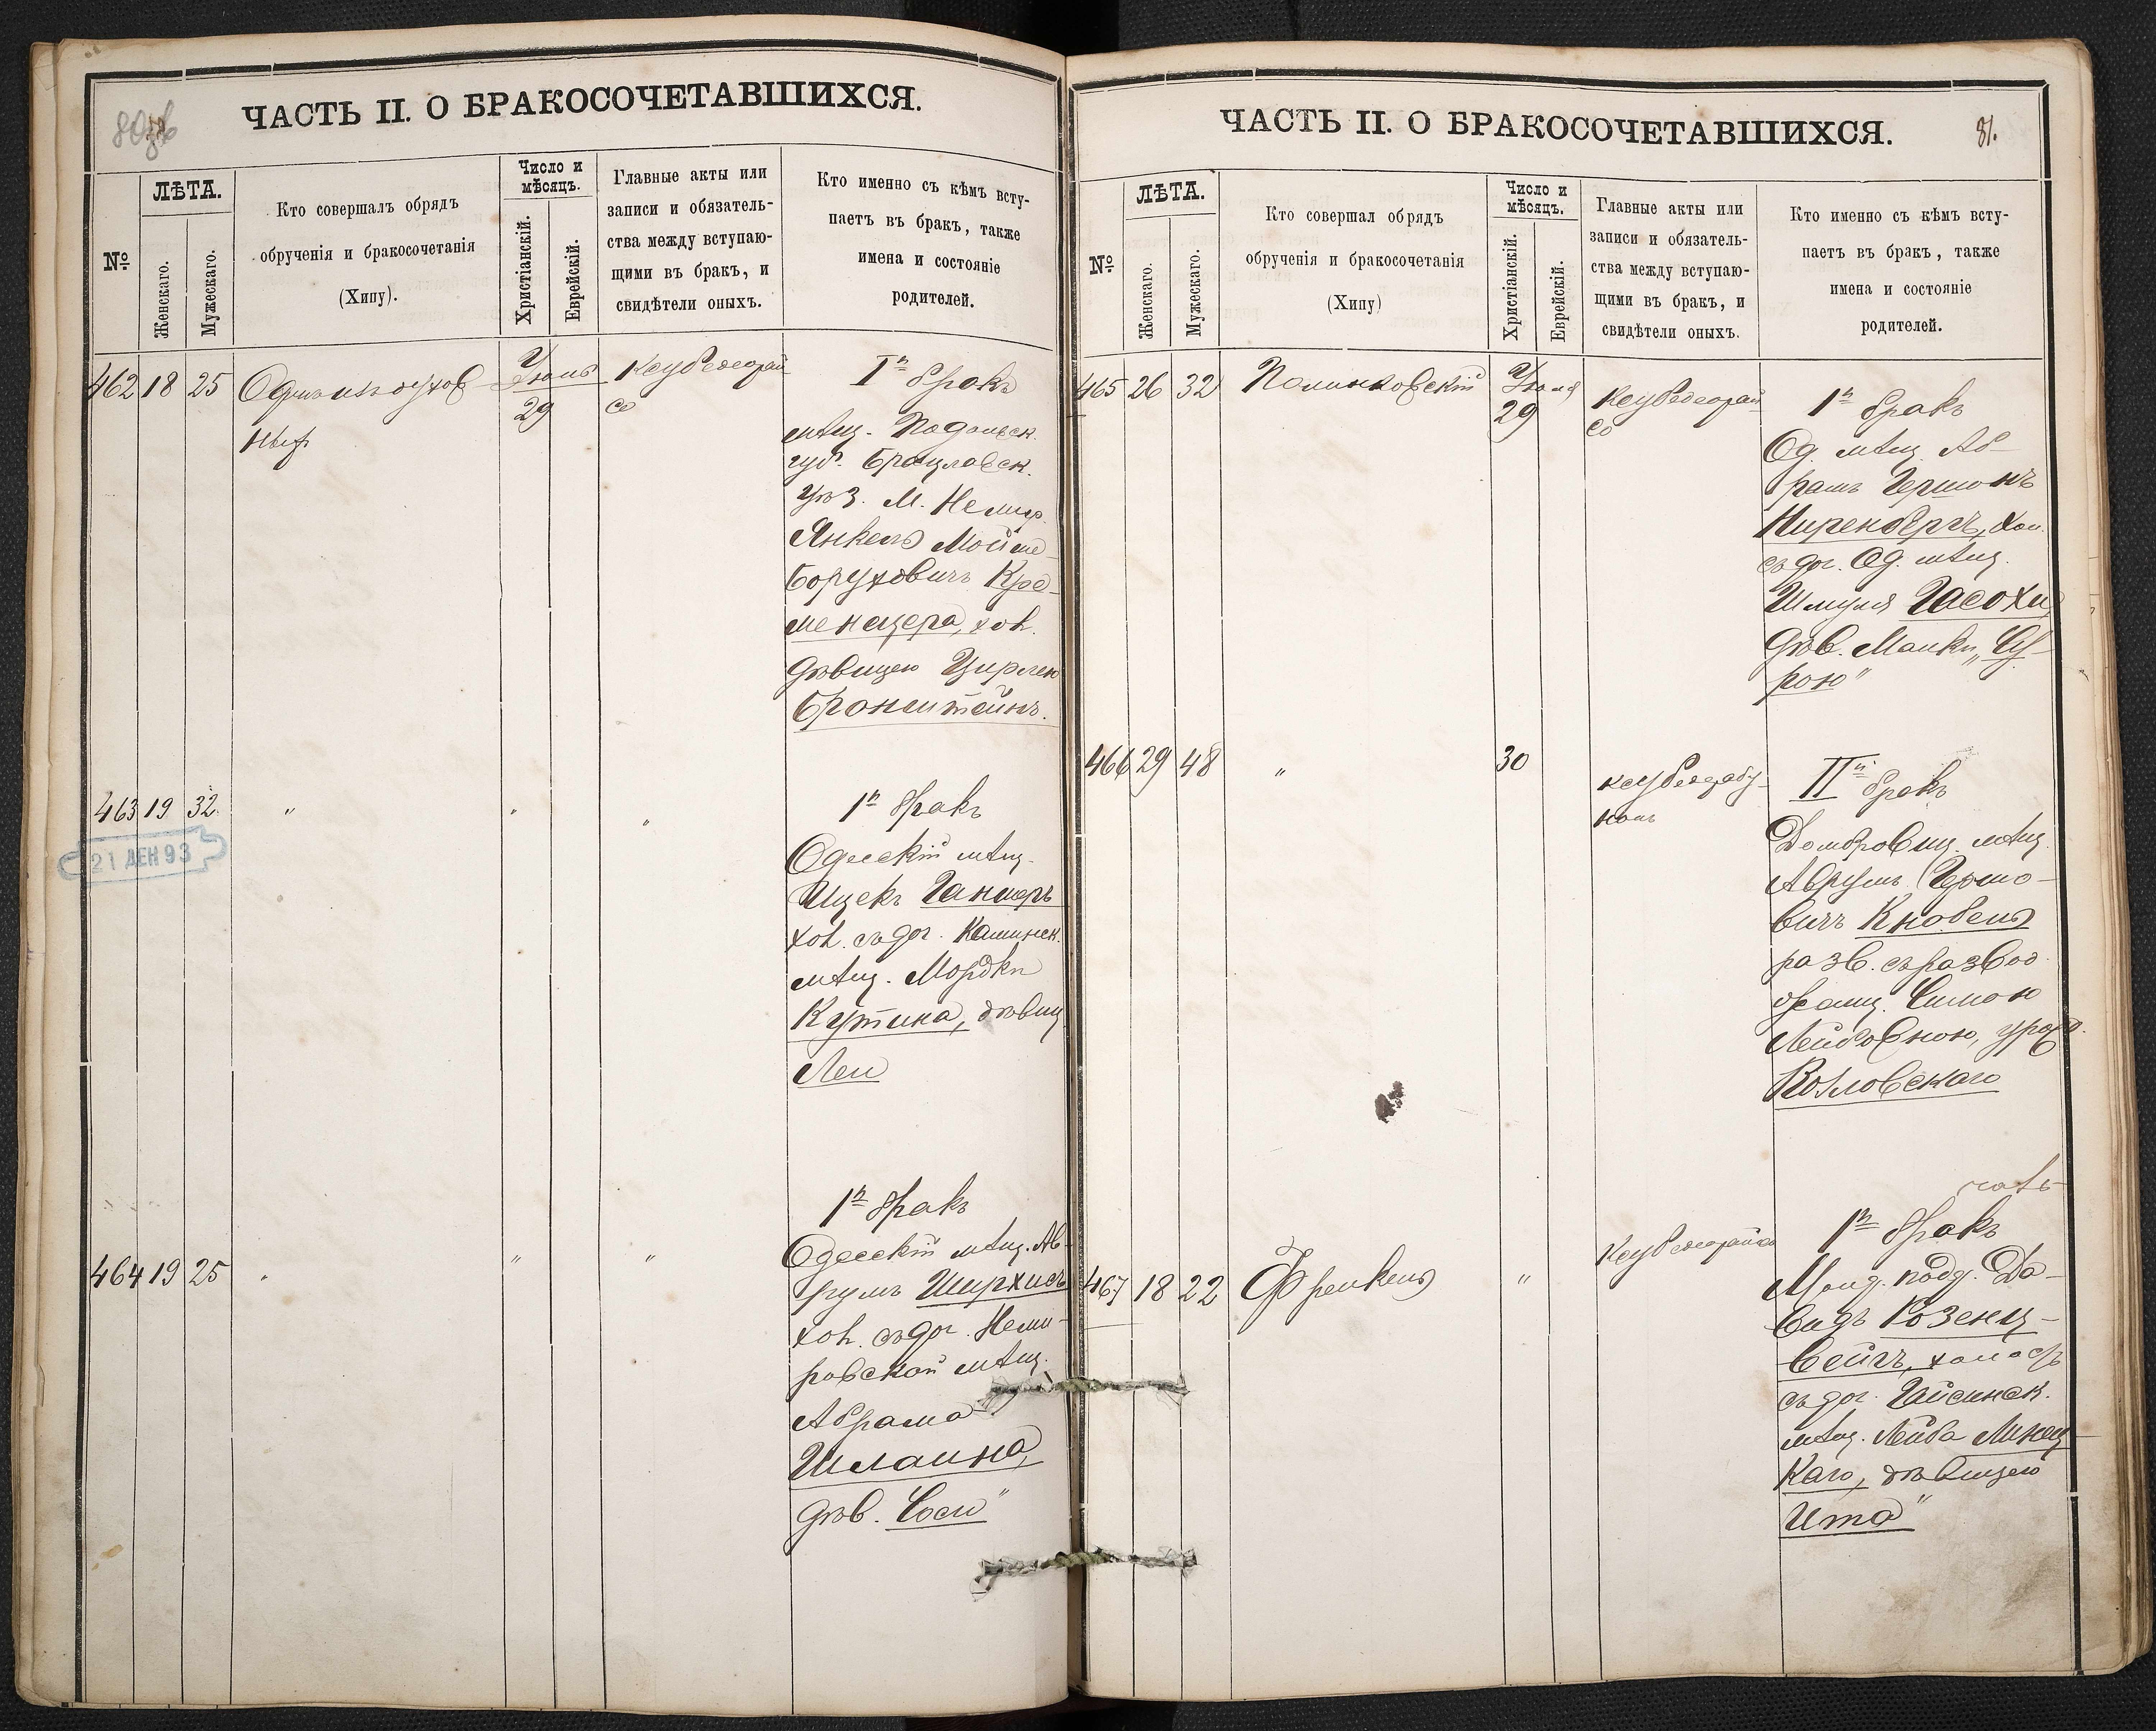 ЧАСТЬ II. О БРАКОСОЧЕТАВШИХСЯ.
№
ЛѢТА.
Женскаго.
Мужескаго.
Кто совершалъ обрядъ
обрученія и бракосочетанія
(Хипу).
Число и
мѣсяцъ.
Христіанскій.
Еврейскій.
Главные акты или
записи и обязатель-
ства между вступаю-
щими въ бракъ, и
свидѣтели оныхъ.
Кто именно съ кѣмъ всту-
паетъ въ бракъ, также
имена и состояніе
родителей.
462 18 25
29
Iй бракъ
мѣщ. Подольск.
губ. Брацлавск.
уѣз. М. Немир.
Янкель Мойше-
Боруховичъ Кре-
менецера, хол.
дѣвицею Цирлею
Бронштейнъ.
463 19 32 " " "
21 ДЕН 93
1й бракъ
Одесскій мѣщ.
Ицекъ
хол. съ доч. Каминск.
мѣщ. Мордки
Кутина, дѣвиц
Леи
464 19 25 " " "
1й бракъ
Одесскій мѣщ. Ав-
румъ Ширхисъ
хол. съ доч. Неми-
ровской мѣщ.
Абрама
Шлаина,
дѣв. Соси"
ЧАСТЬ II. О БРАКОСОЧЕТАВШИХСЯ.
81.
№
ЛѢТА.
Женскаго.
Мужескаго.
Кто совершал обрядъ
обрученія и бракосочетанія
(Хипу)
Число и
мѣсяцъ.
Христіанскій.
Еврейскій.
Главные акты или
записи и обязатель-
ства между вступаю-
щими въ бракъ, и
свидѣтели оныхъ.
Кто именно съ кѣмъ всту-
паетъ въ бракъ, также
имена и состояніе
родителей.
465 26 32 Полинковскій Іюля
29
1й бракъ
Од. мѣщ. Аб-
рамъ Гершонъ
Ниренбергъ, хол.
съ доч. Од. мѣщ.
Шмуля
дѣв. Манки „Су-
рою"
466 29 48 " 30
IIй бракъ
Домбровиц. мѣщ.
Аврумъ Гершо-
вичъ Кнобель
разв. съ развод.
Симою
Лейбовною, урожд.
Козловскаго
467 18 22 Френкель "
1й бракъ
Молд. подд. Да-
видъ Розенц-
вейгъ, холостъ
съ доч. Гайсинск.
мѣщ. Лейба Минец
каго, дѣвицею
Ита"